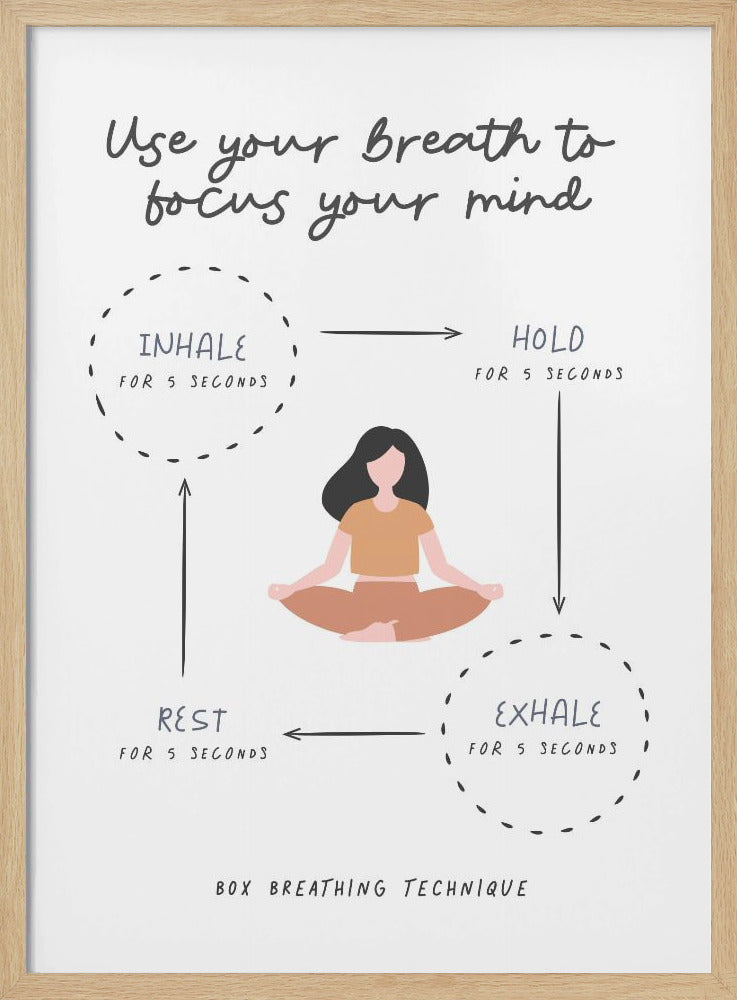 Use your breath to
focus your mind
INHALE
FOR 5 SECONDS
HOLD
FOR 5 SECONDS
REST
FOR 5 SECONDS
EXHALE
FOR 5 SECONDS
BOX BREATHING TECHNIQUE